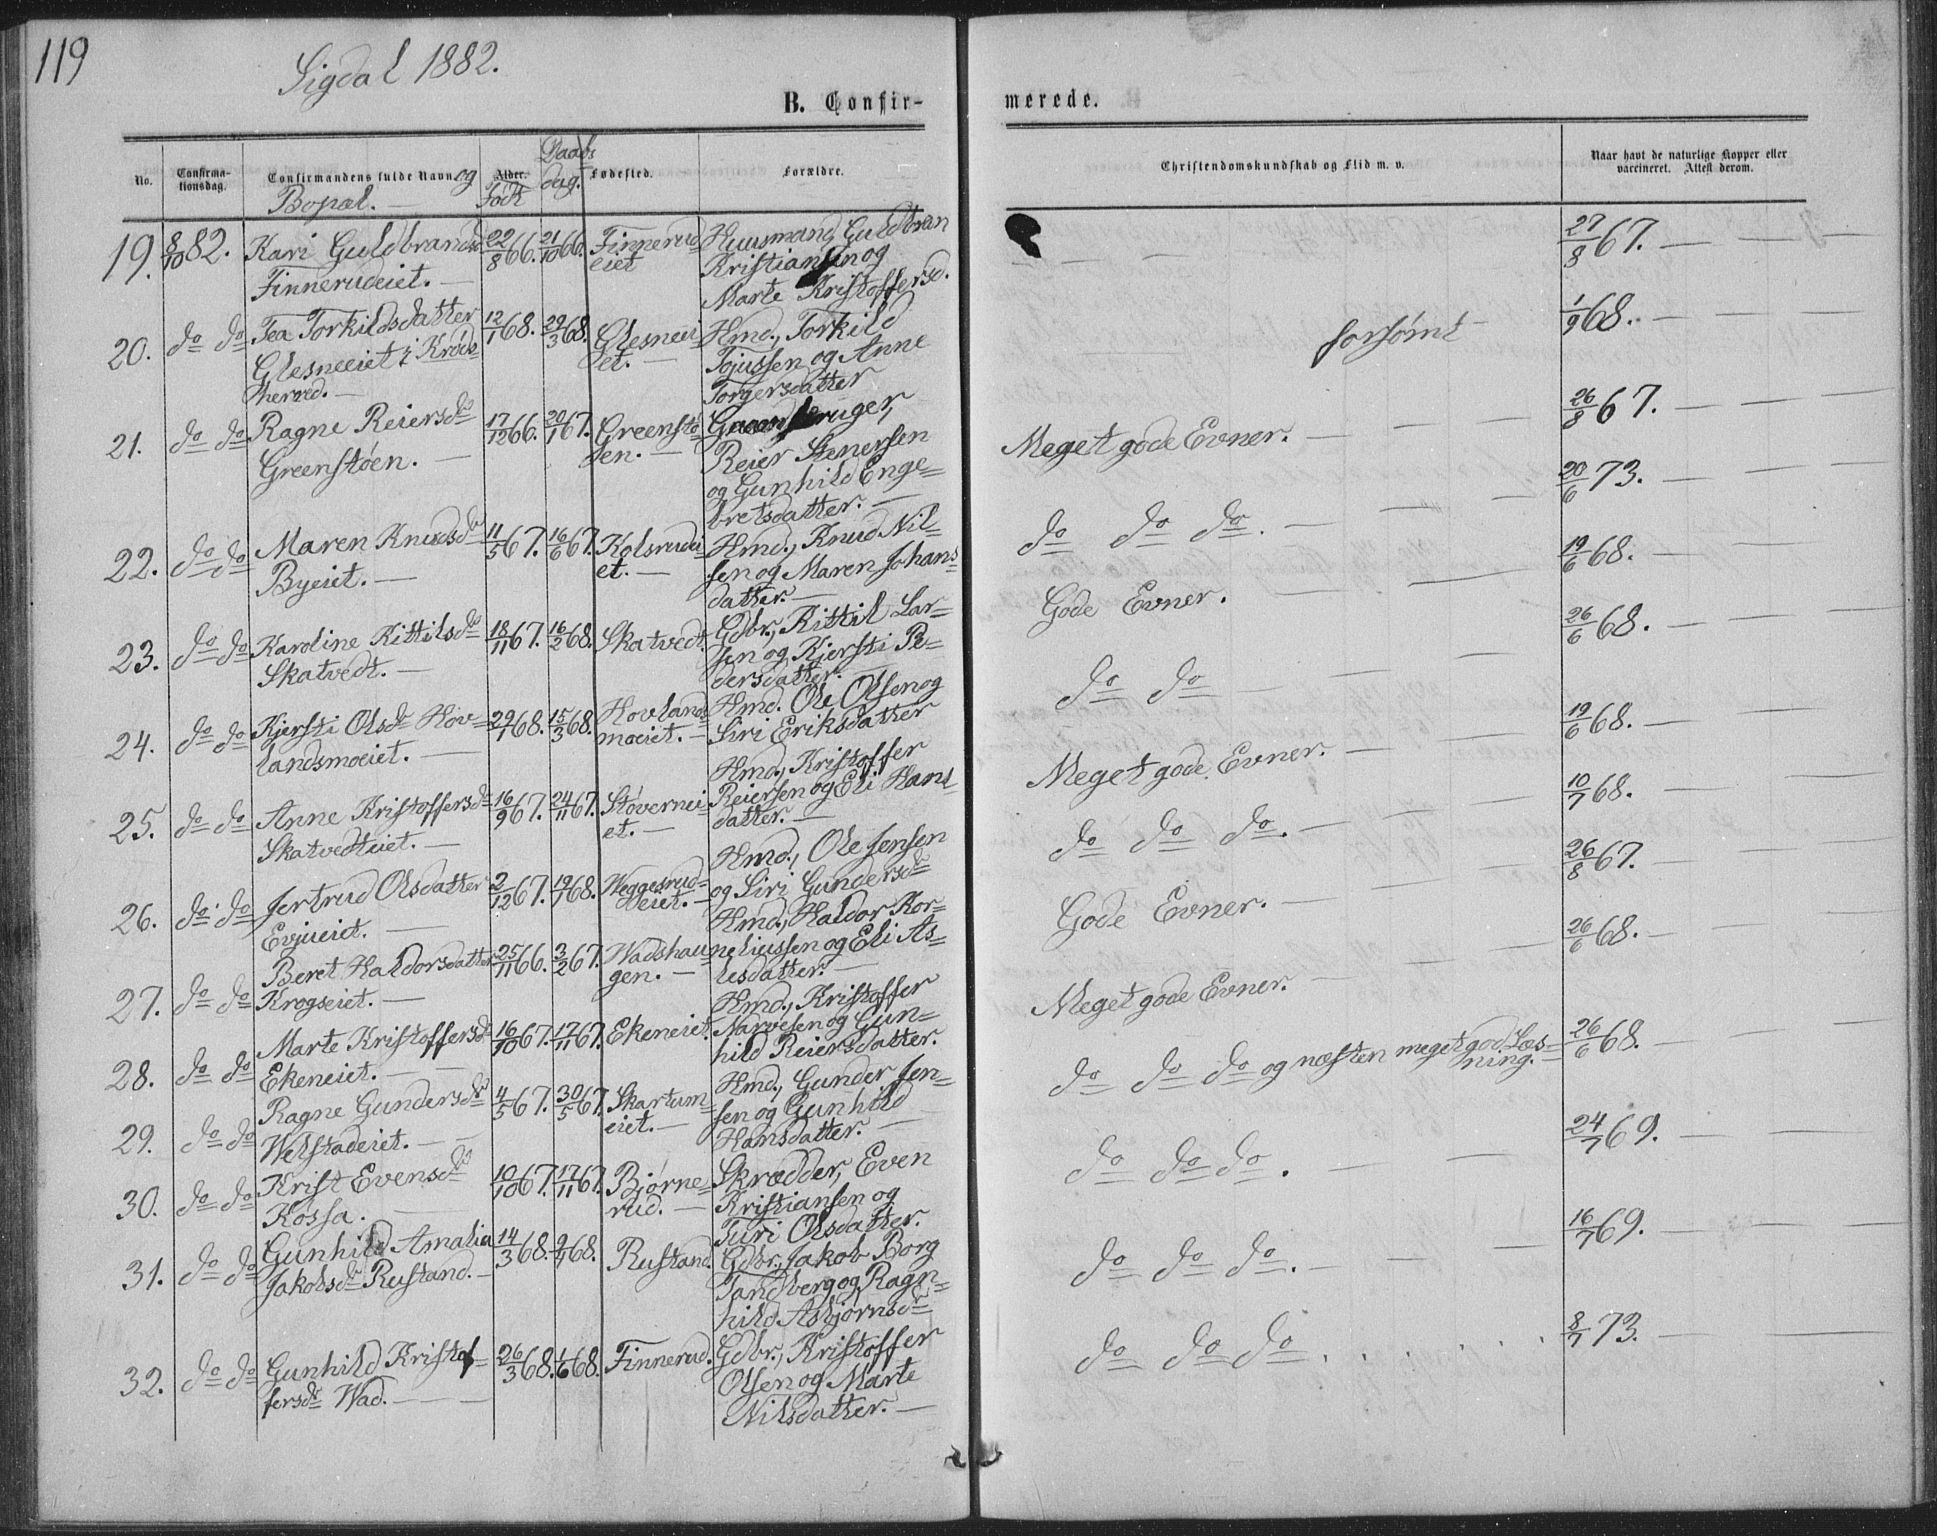 119
Sigdal 1882.
B. Confir-
merede.
No.
Confirma-
tionsdag.
Confirmandens fulde Navn og
Bopæl. —
Alder.
født
Daabs
dag.
Fødested.
Forældre.
Christendomskundskab og Flid m. v.
Naar havt de naturlige Kopper eller
vaccineret. Attest derom.
19. 8/10 82. Kari Guldbrandsd 22/8 66. 21/10 66. Finnerud Huusmand, Guldbran
eiet Kristiansen og
Finnerudeiet. — Marte Kristoffersd.
27/8 67. — — —
20. do do Tea Torkildsdatter 12/1 68. 29/3 68. Glesneei Hmd., Torkild
Glesneeiet i Krøds et. — Tojussen og Anne
herred. — Torgersdatter
forsømt 1/9 68. —
21. do do Ragne Reiersdr 17/12 66. 20/1 67. Greenstø Gaardbruger,
Greenstøen. — en. — Reier Stenersen
og Gunhild Enge=
bretsdatter. —
Meget gode Evner. — 26/8 67. —
22. do do Maren Knudsdr 11/5 67. 16/6 67. Kolsrudei Hmd., Knud Nil=
Byeiet. — et. — sen og Maren Johans
datter. —
do do do. — 20/6 73. —
23. do do Karoline Kittilsdr 18/11 67. 16/2 68. Skatvedt. Gdbr., Kittil Lar=
Skatvedt. — sen og Kjersti Pe=
dersdatter.
Gode Evner. — 19/6 68. —
24. do do Kjersti Olsdr Hov= 29/1 68. 15/3 68. Hovlands Hmd. Ole Olsen og
landsmoeiet. — moeiet. — Siri Eriksdatter
do do — 26/6 68. —
25. do do Anne Kristoffersdr 16/9 67. 24/11 67. Støvernei Hmd., Kristoffer
Skatvedteiet. — et. — Reiersen og Eli Hans
datter. —
Meget gode Evner. — 19/6 68. —
26. do do Jertrud Olsdatter 2/12 67. 19/1 68. Weggesrud= Hmd., Ole Jensen
Evjueiet. — eiet. — og Siri Gundersdr
do do do. — 10/7 68. —
27. do do Beret Haldorsdatter 25/11 66. 3/2 67. Wadshau Hmd., Haldor Kor=
Krogseiet. — gen. — neliussen og Eli As=
lesdatter. —
Gode Evner. — 26/8 67. —
28. do do Marte Kristoffersdr 16/10 67. 17/11 67. Ekeneiet. Hmd., Kristoffer
Ekeneiet. — Narvesen og Gun=
hild Reiersdatter.
Meget gode Evner. — 26/6 68. —
29. do do Ragne Gundersdr 4/5 67. 30/5 67. Skartum= Hmd., Gunder Jen=
Welstadeiet. — eiet. — sen og Gunhild
Hansdatter. —
do do do og næsten meget god Læs=
ning. — 26/6 68. —
30. do do Krist Evensdr 10/10 67. 17/11 67. Bjørne= Skrædder, Even
Kossa. — rud. — Kristiansen og
Turi Olsdatter.
do do do. — 24/7 69. —
31. do do Gunhild Amalia 14/3 68. 9/7 68. Rustand. Gdbr., Jakob Borg
Jakobsdr Rustand. — Tandberg og Ragn=
hild Asbjørnsdr
do do do. — 16/7 69. —
32. do do Gunhild Kristof= 26/3 68. 1/6 68. Finnerud. Gdbr., Kristoffer
fersdr Wad. — Olsen og Marte
Nilsdatter. —
do do do . . . . . 8/7 73. —